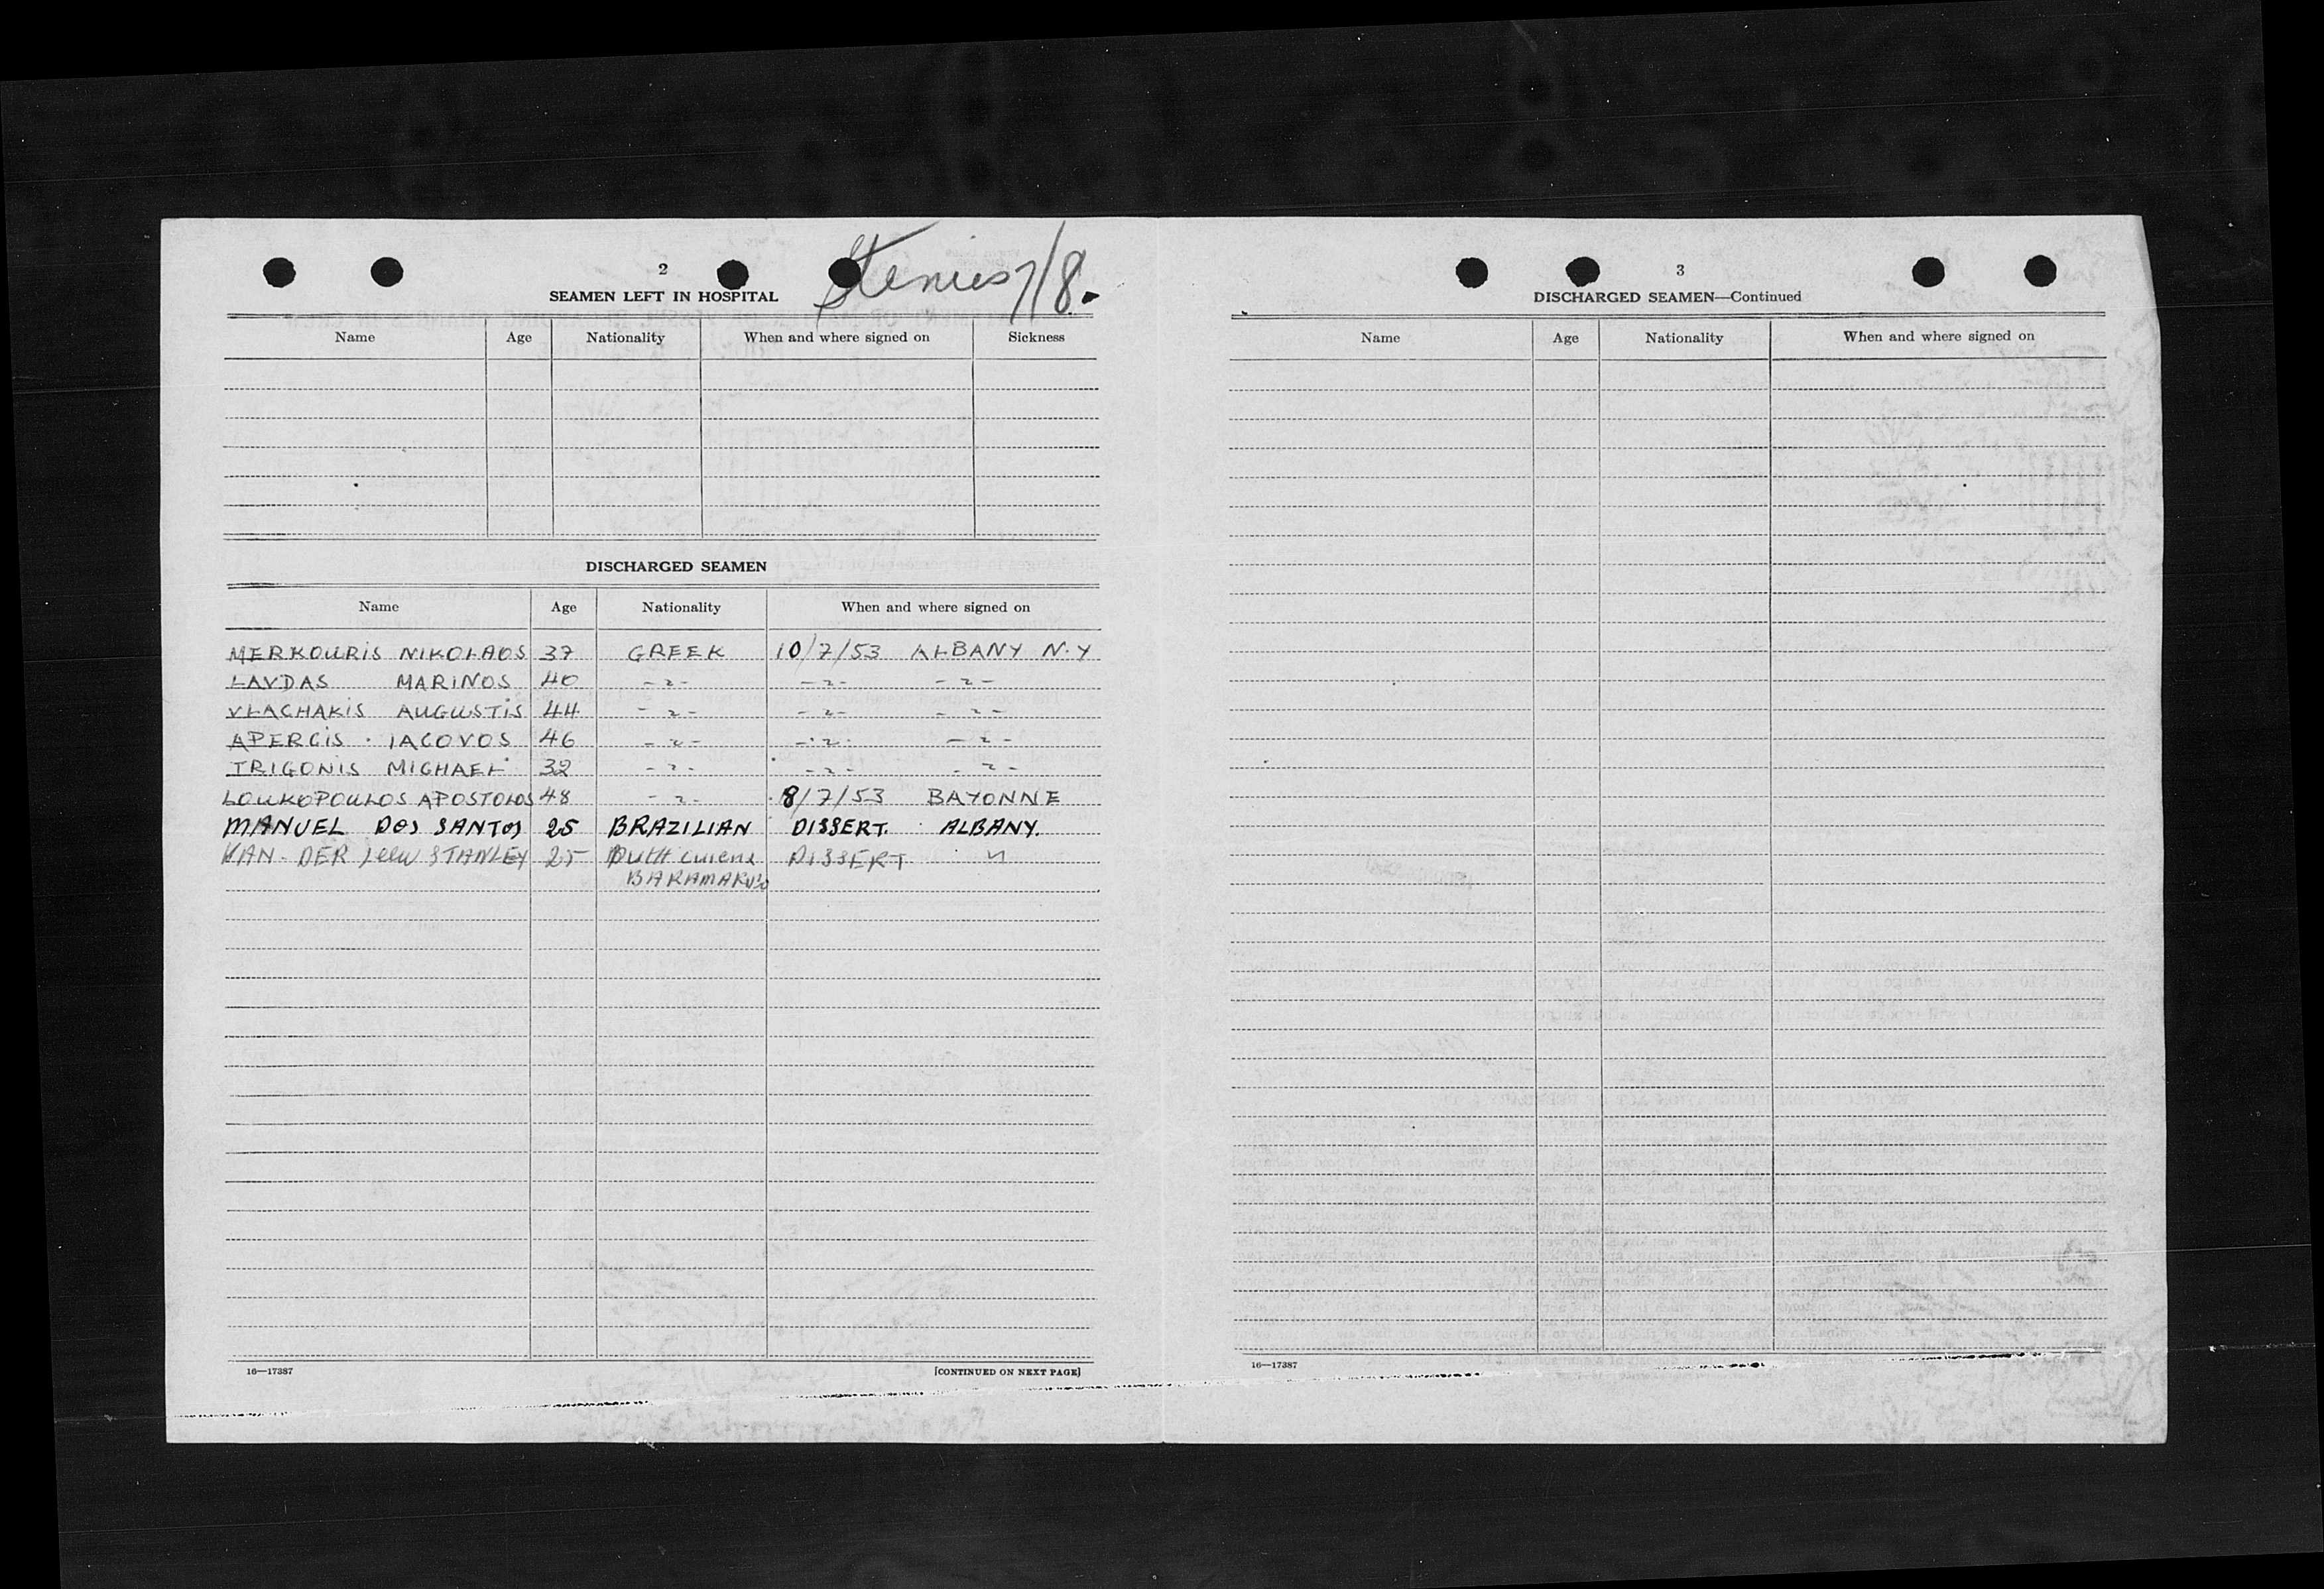 2
Stenies 7/8.
SEAMEN LEFT IN HOSPITAL
Name Age Nationality When and where signed on Sickness
DISCHARGED SEAMEN
Name Age Nationality When and where signed on
MERKOURIS NIKOLAOS 37 GREEK 10/7/53 ALBANY N.Y
LAVDAS MARINOS 40 -〃- -〃- -〃-
VLACHAKIS AUGUSTIS 44 -〃- -〃- -〃-
APERGIS IACOVOS 46 -〃- -〃- -〃-
TRIGONIS MICHAEL 32 -〃- -〃- -〃-
LOUKOPOULOS APOSTOLOS 48 -〃- 8/7/53 BAYONNE
MANUEL DOS SANTOS 25 BRAZILIAN DISSERT. ALBANY.
VAN-DER STANLEY 25 DISSERT 〃
16—17387 [CONTINUED ON NEXT PAGE]
3
DISCHARGED SEAMEN—Continued
Name Age Nationality When and where signed on
16—17387